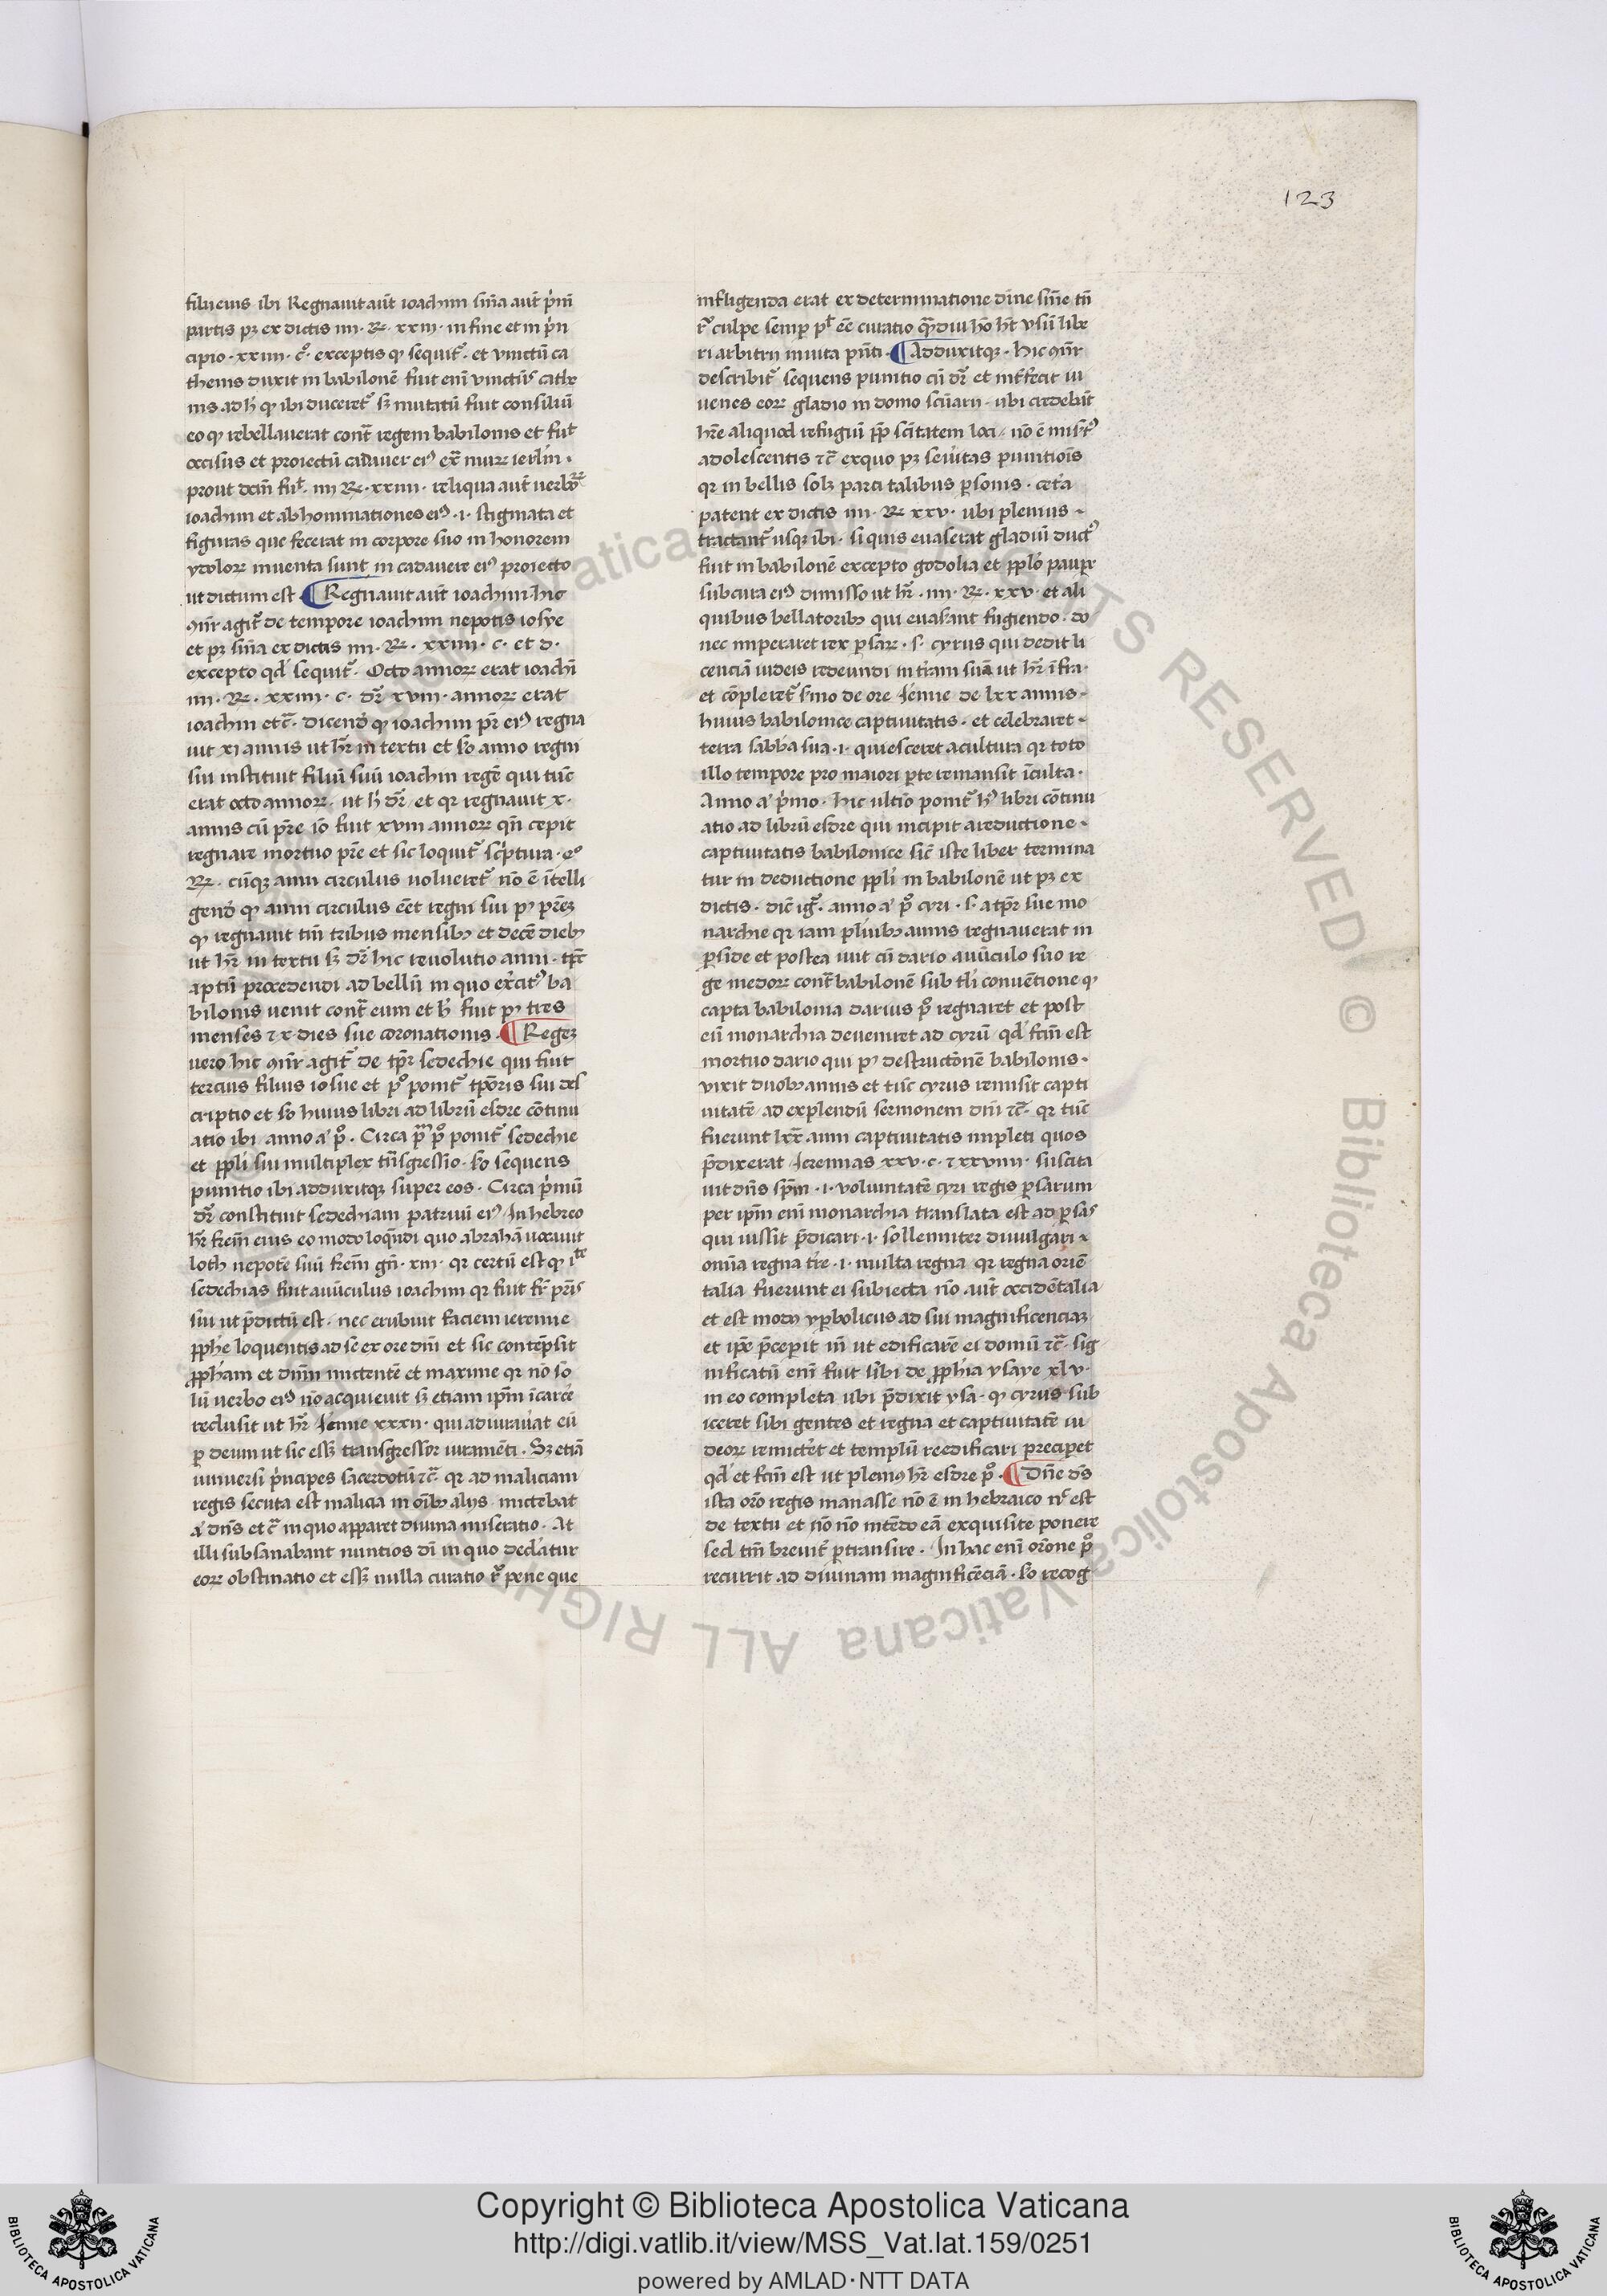 123
filii eius ibi Regnauit aut̄ ioachim sn̄ia aut̄ p̄im̄
partis pꝫ ex dictis iiii · Rꝫ · xxiii · in fine et in p̄in
cipio · xxiiii · c̄ · exceptis qꝫ sequit᷑ · et vinctū ca
thenis duxit in babilonē fuit enī vinctus cathe
nis ad h̄ qꝫ ibi duceret᷑ sꝫ mutatū fuit consiliū
eo qꝫ rebellauerat cont̄ regem babilonis et fuit
occisus et proiectū cadauer eiꝰ ext̄ muꝝ ierl̄m ·
prout dcm̄ fuit iiii Rꝫ · xxiiii · reliqua aut̄ verboꝝ
ioachim et abhominationes eiꝰ · i · stigmata et
figuras que fecerat in corpore suo in honorem
ydoloꝝ inuenta sunt in cadauere eiꝰ proiecto
ut dictum est · ¶ Regnauit aut̄ ioachim hic
ꝯn̄r agit᷑ de tempore ioachim nepotis iosye
et pꝫ sn̄ia ex dictis iiii · Rꝫ · xxiiii · c · et d ·
excepto qd̄ sequit᷑ · Octo annoꝝ erat ioachī
iiii · Rꝫ · xxiiii · c · dr̄ xviii · annoꝝ erat
ioachin etc̄ · dicend̄ qꝫ ioachim pr̄ eiꝰ regna
uit xi annis ut hr̄ in textu et so anno regni
sui instituit filiū suū ioachin regē qui tūc
erat octo annoꝝ · ut h̄ dr̄ et qr regnauit x ·
annis cū pr̄e iō fuit xviii annoꝝ qn̄ cepit
regnare mortuo pr̄e et sic loquit᷑ sc̄ptura · eº
Rꝫ · cūqꝫ anni circulus volueret᷑ nō ē ītelli
gend̄ qꝫ anni circulus eēt regni sui pꝰ pr̄eꝫ
qꝫ regnauit tm̄ tribus mensibꝫ et decē diebꝫ
ut hr̄ in textu sꝫ dr̄ hic reuolutio anni · tp̄ꝭ
aptū procedendi ad bellū in quo ex̄citꝰ ba
bilonis uenit cont̄ eum et h̄ fuit pꝰ tres
menses ⁊ x dies sue coronationis · ¶ Regeꝫ
vero hic ꝯn̄r agit᷑ de tp̄r sedechie qui fuit
tercius filius iosue et pº ponit᷑ tp̄oris sui des
criptio et so huius libri ad librū esdre cōtinu
atio ibi anno a̓ pº · Circa pm̄ pº ponit᷑ sedechie
et pp̄li sui multiplex tn̄sgressio · so sequens
punitio ibi adduxitqꝫ super eos · Circa p̄imū
dr̄ constituit sedechiam patruū eiꝰ In hebreo
hr̄ frem̄ eius eo modo loqn̄di quo abrahā uocauit
loth nepotē suū frem̄ gn̄ · xiii · qr certū est qꝫ iste
sedechias fuit auūculus ioachim qr fuit fr̄ pr̄is
sui ut p̄dictū est · nec erubuit faciem ieremie
pp̄he loquentis ad se ex ore dn̄i et sic contēpsit
pp̄ham et dn̄m mictentē et maxime qr nō so
lū verbo eiꝰ nō acquieuit sꝫ etiam ip̄m ī carcē
reclusit ut hr̄ Jēmie xxxii · qui adiurau̓at eū
ꝑ deum ut sic esset transgressor iuramēti · Sꝫ etiā
uniuersi p̄incipes sacerdotū ⁊c̄ · qr ad maliciam
regis secuta est malicia in oībꝫ alijs · mictebat
a̓ dn̄s etc̄ in quo apparet diuina miseratio · At
illi subsanabant nuntios dī in quo declatur
eoꝝ obstinatio et esset nulla curatio r̄º pene que
infligenda erat ex determinatione diīne sn̄ie tn̄
r̄º culpe semꝑ pt̄ eē curatio qmdiu hō ht̄ vsū libe
ri arbitrii in uita pn̄ti · ¶ Adduxitqꝫ · hic ꝯn̄r
describit᷑ sequens punitio cū dr̄ et int̄fecit iu
uenes eoꝝ gladio in domo sc̄uarii · ubi credebāt
hr̄e aliquod refugiū ꝓp̄ sc̄itatem loci · nō ē mis̓tꝰ
adolescentis ⁊c̄ ex quo pꝫ seuitas punitiois
qr in bellis solꝫ parci talibus ꝑsonis · cet̓a
patent ex dictis iiii · Rꝫ xxv · ubi plenius ·
tractant᷑ usqꝫ ibi · si quis euaserat gladiū ductꝰ
fuit in babilonē excepto godolia et pp̄lo pauꝑe
sub cura eiꝰ dimisso ut hr̄ · iiii · Rꝫ · xxv · et ali
quibus bellatoribꝫ qui euas̓ant fugiendo · do
nec imperaret rex ꝑsaꝝ · s · cyrus qui dedit li
cenciā iudeis redeundi in t̓ram suā ut hr̄ īfra ·
et cōpleret᷑ s̓mo de ore Jēmie de lxx annis ·
huius babilonice captiuitatis · et celebraret ·
terra sabba sua · i · quiesceret a cultura qr toto
illo tempore pro maiori ꝑte remansit īculta ·
Anno a̓ p̄imo · hic ultīo ponit᷑ hꝰ libri cōtinu
atio ad librū esdre qui incipit a reductione ·
captiuitatis babilonice sic̄ iste liber termina
tur in deductione pp̄li in babilonē ut pꝫ ex
dictis · dic̄ ig̓ · anno a̓ pº cyri · s · a tp̄r sue mo
narchie qr iam plu̓ibꝫ annis regnauerat in
ꝑside et postea iuit cū dario auūculo suo re
ge medoꝝ cont̄ babilonē sub tli conuētione qꝫ
capta babilonia darius pº regnaret et post
eū monarchia deueniret ad cyrū qd̄ fcm̄ est
mortuo dario qui pꝰ destructōnē babilonis ·
vixit duobꝫ annis et tūc cyrus remisit capti
uitatē ad explendū sermonem dn̄i ⁊c̄ · qr tūc
fuerunt lxx anni captiuitatis impleti quos
p̄dixerat Jeremias xxv · c · ⁊ xxviiii · suscita
uit dn̄s sp̄m · i · voluntatē cyri regis ꝑsarum
per ip̄m enī monarchia translata est ad ꝑsas
qui iussit p̄dicari · i · sollemniter diuulgari ·
omīa regna t̓re · i · multa regna qr regna oriē
talia fuerunt ei subiecta nō aut̄ occidētalia
et est modꝰ yꝑbolicus ad sui magnificenciaꝫ
et ip̄e p̄cepit m̄ ut edificarē ei domū ⁊c̄ · sig
nificatū enī fuit sibi de pp̄hia ysaye xlv ·
in eo completa ubi p̄dixit ysa · qꝫ cyrus sub
iceret sibi gentes et regna et captiuitatē iu
deoꝝ remict̓et et templū reedificari preciperet
qd̄ et fcm̄ est ut pleniꝰ hr̄ esdre pº · ¶ Dn̄e ds̄
ista orō regis manasse nō ē in hebraico nº est
de textu et nō nō intēdo eā exquisite ponere
sed tm̄ breuit᷑ ꝑtransire · In hac enī orōne pº
recurrit ad diuinam magnificēciā · so recog
Copyright © Biblioteca Apostolica Vaticana
http://digi.vatlib.it/view/MSS_Vat.lat.159/0251
powered by AMLAD·NTT DATA